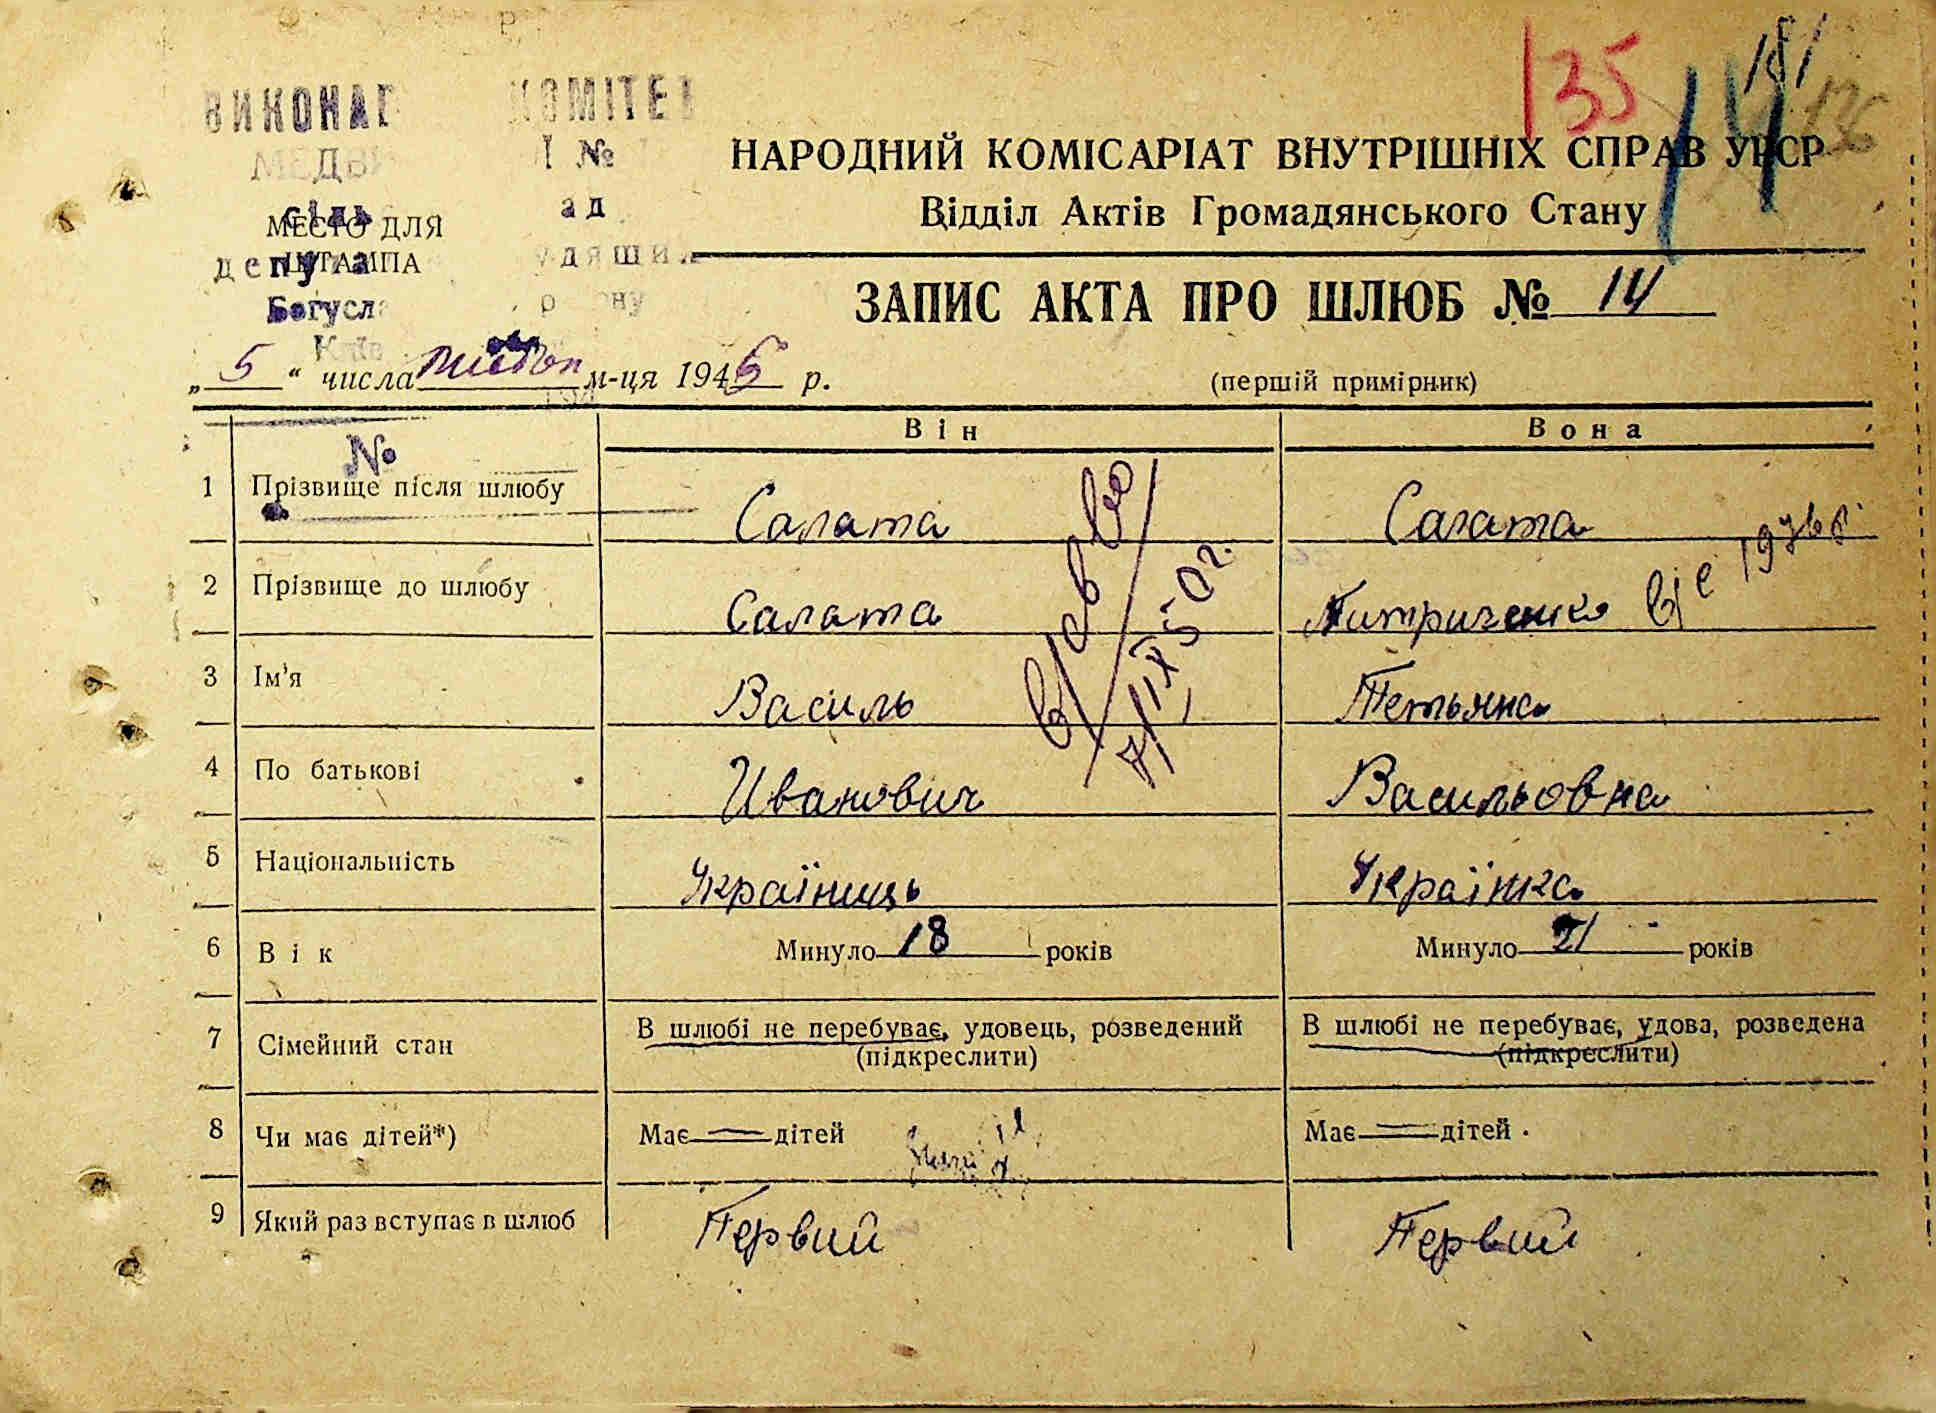 135 14 181 136
ВИКОНА КОМІТЕ
МЕДВ І №
НАРОДНИЙ КОМІСАРІАТ ВНУТРІШНІХ СПРАВ УРСР
сіль ад
Відділ Актів Громадянського Стану
МЕСТО ДЛЯ
ШТАМПА
депута удящих
Богусл р ну
Київ
ЗАПИС АКТА ПРО ШЛЮБ № 14
„ 5 “ числа м-ця 1946 р.
(першій примірник)
Він Вона
№
1 Прізвище після шлюбу Салата Салата
2 Прізвище до шлюбу Салата
7/ІХ 50г.
3 Ім'я Василь Тетьяна
4 По батькові Иванович Васильовна
5 Національність Українець Українка
6 Вік Минуло 18 років Минуло 21 років
7 Сімейний стан В шлюбі не перебуває, удовець, розведений В шлюбі не перебуває, удова, розведена
(підкреслити) (підкреслити)
8 Чи має дітей*) Має — дітей Має — дітей
9 Який раз вступає в шлюб Первий Первий